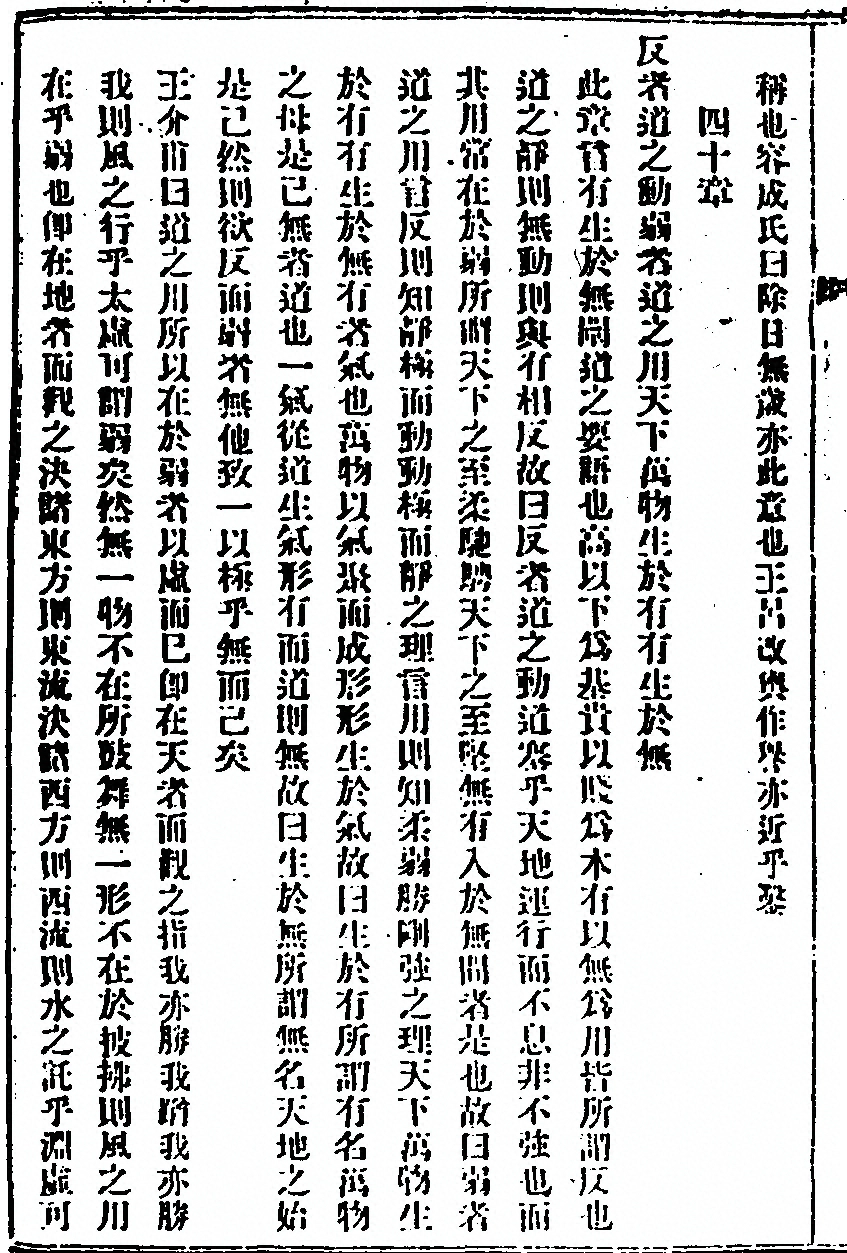 稱也容成氏曰除日無歲亦此意也王呂改輿作譽亦近乎鑿
四十章
反者道之動弱者道之用天下萬物生於有有生於無
此章言有生於無關道之要語也高以下爲基貴以賤爲本有以無爲用皆所謂反也
道之靜則無動則與有相反故曰反者道之動道塞乎天地運行而不息非不強也而
其用常在於弱所謂天下之至柔馳騁天下之至堅無有入於無間者是也故曰弱者
道之用言反則知靜極而動動極而靜之理言用則知柔弱勝剛強之理天下萬物生
於有有生於無有者氣也萬物以氣聚而成形形生於氣故曰生於有所謂有名萬物
之母是已無者道也一氣從道生氣形有而道則無故曰生於無所謂無名天地之始
是已然則欲反而弱者無他致一以極乎無而已矣
王介甫曰道之用所以在於弱者以虛而已卽在天者而觀之指我亦勝我蹈我亦勝
我則風之行乎太虛可謂弱矣然無一物不在所鼓舞無一形不在於披拂則風之用
在乎弱也卽在地者而觀之決諸東方則東流決諸西方則西流則水之託乎淵虛可